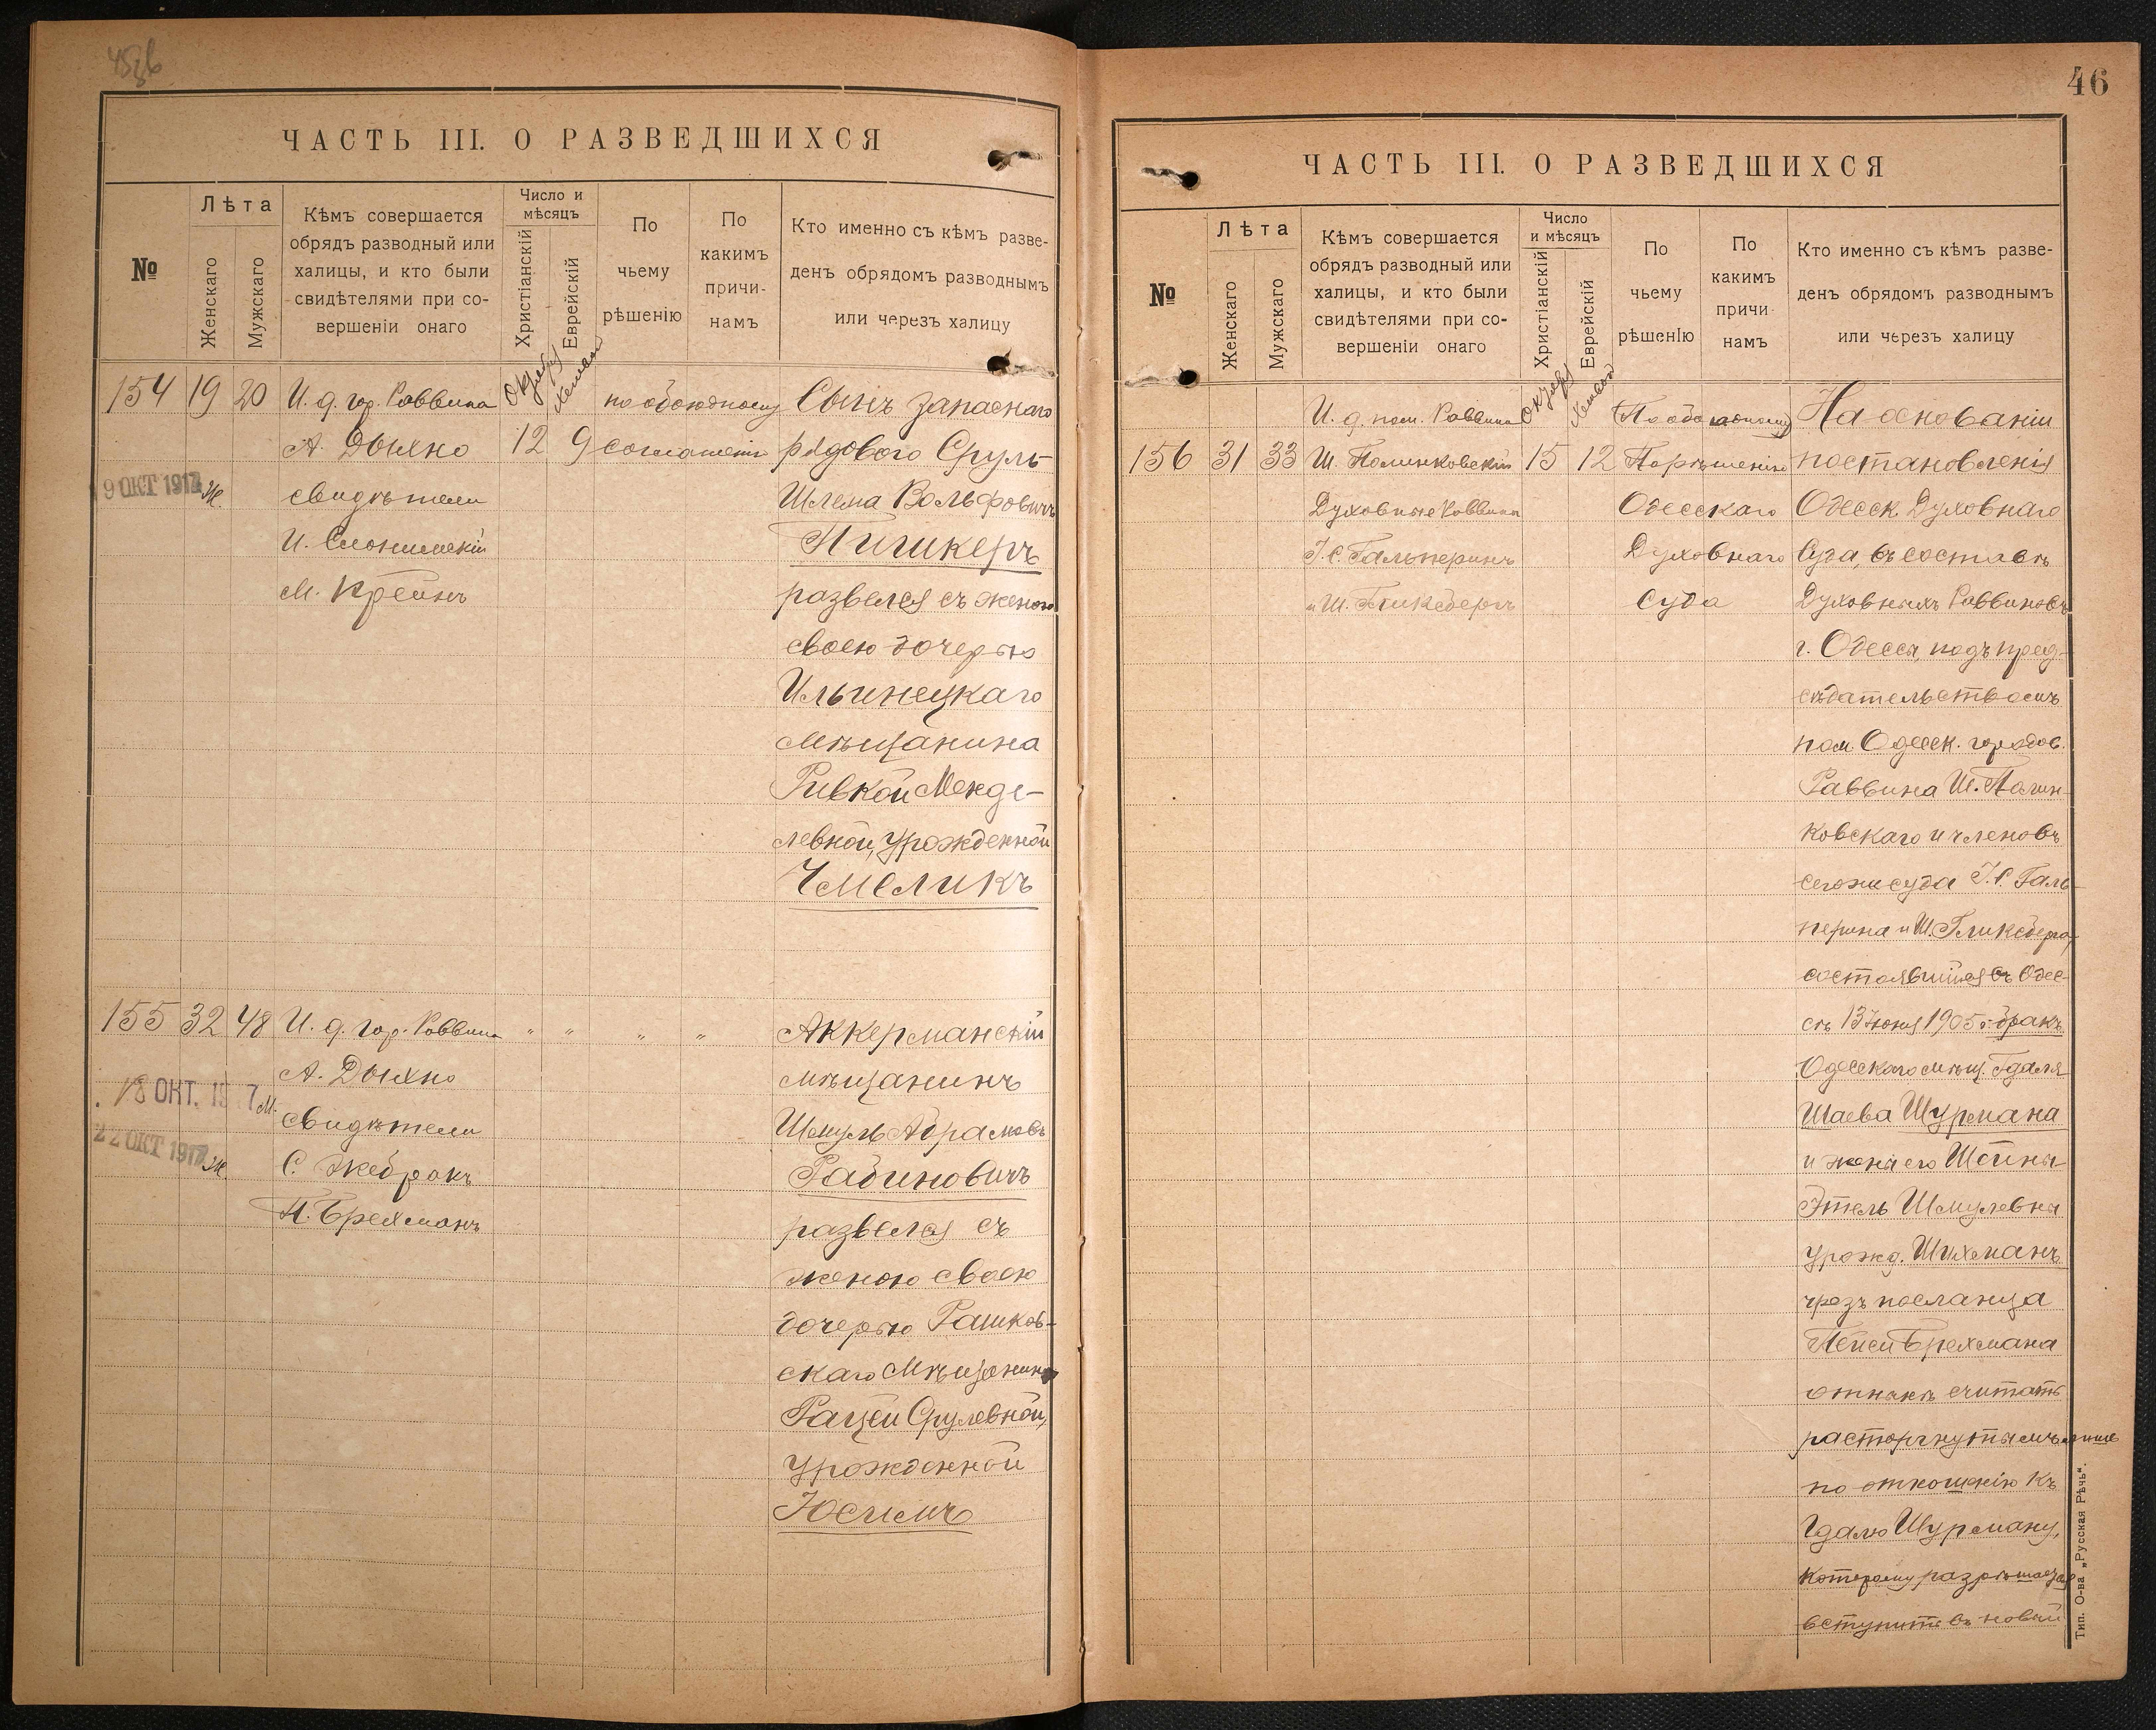 ЧАСТЬ III. О РАЗВЕДШИХСЯ
№
Лѣта
Женскаго
Мужскаго
Кѣмъ совершается
обрядъ разводный или
халицы, и кто были
свидѣтелями при со-
вершеніи онаго
Число и
мѣсяцъ
Христіанскій
Еврейскій
По
чьему
рѣшенію
По
какимъ
причи-
намъ
Кто именно съ кѣмъ разве-
денъ обрядомъ разводнымъ
или черезъ халицу
154 19 20 И. д. гор. Раввина
А. Дыхно
свидѣтели
И. Слонимскій
М. Крейнъ
12 9
по обоюдному
соглашенію
9 ОКТ 1917 Ж.
Сынъ запаснаго
рядового Сруль-
Шлема Вольфовичъ
развелся съ женою
своею дочерью
Ильинецкаго
мѣщанина
Ривкой Менде-
левной, урожденной
Чмеликъ
155 32 48 И. д. гор. Раввина " " " "
А. Дыхно
свидѣтели
С. Жебракъ
Брехманъ
18 ОКТ. 1917 М.
22 ОКТ 1917 Ж.
Аккерманскій
мѣщанинъ
Шмуль Абрамовъ
Рабиновичъ
развелся съ
женою своею
дочерью Рашков-
скаго мѣщанина
Срулевной,
урожденной
46
ЧАСТЬ III. О РАЗВЕДШИХСЯ
№
Лѣта
Женскаго
Мужскаго
Кѣмъ совершается
обрядъ разводный или
халицы, и кто были
свидѣтелями при со-
вершеніи онаго
Число
и мѣсяцъ
Христіанскій
Еврейскій
По
чьему
рѣшенІю
По
какимъ
причи-
намъ
Кто именно съ кѣмъ разве-
денъ обрядомъ разводнымъ
или черезъ халицу
156 31 33
И. д. пом. Раввина
Ш. Полинковскій
Духовные Раввины
Гальперинъ
и Ш. Гликсбергъ
15 12
(По обоюдному)
По рѣшенію
Одесскаго
Духовнаго
Суда
На основаніи
постановленія
Одесск. Духовнаго
Суда, въ составѣ
Духовныхъ Раввиновъ
г. Одессы, подъ пред-
сѣдательствомъ
пом. Одесск. городов.
Раввина Ш. Полин-
ковскаго и членовъ
сегоже суда Галь-
перина и Ш. Гликсберга,
состоявшійся въ Одес-
сѣ 13 Іюня 1905 г. бракъ
Одесскаго мѣщ. Гдаля
Шаева Шурмана
и жены его Шейны-
Этель Шмулевны
урожд. Шихманъ
чрезъ посланца
Брехмана
отнынѣ считать
расторгнутымъ лишь
по отношенію къ
Гдалю Шурману,
которому разрѣшается
вступить въ новый
Тип. О-ва „Русская Рѣчь“.